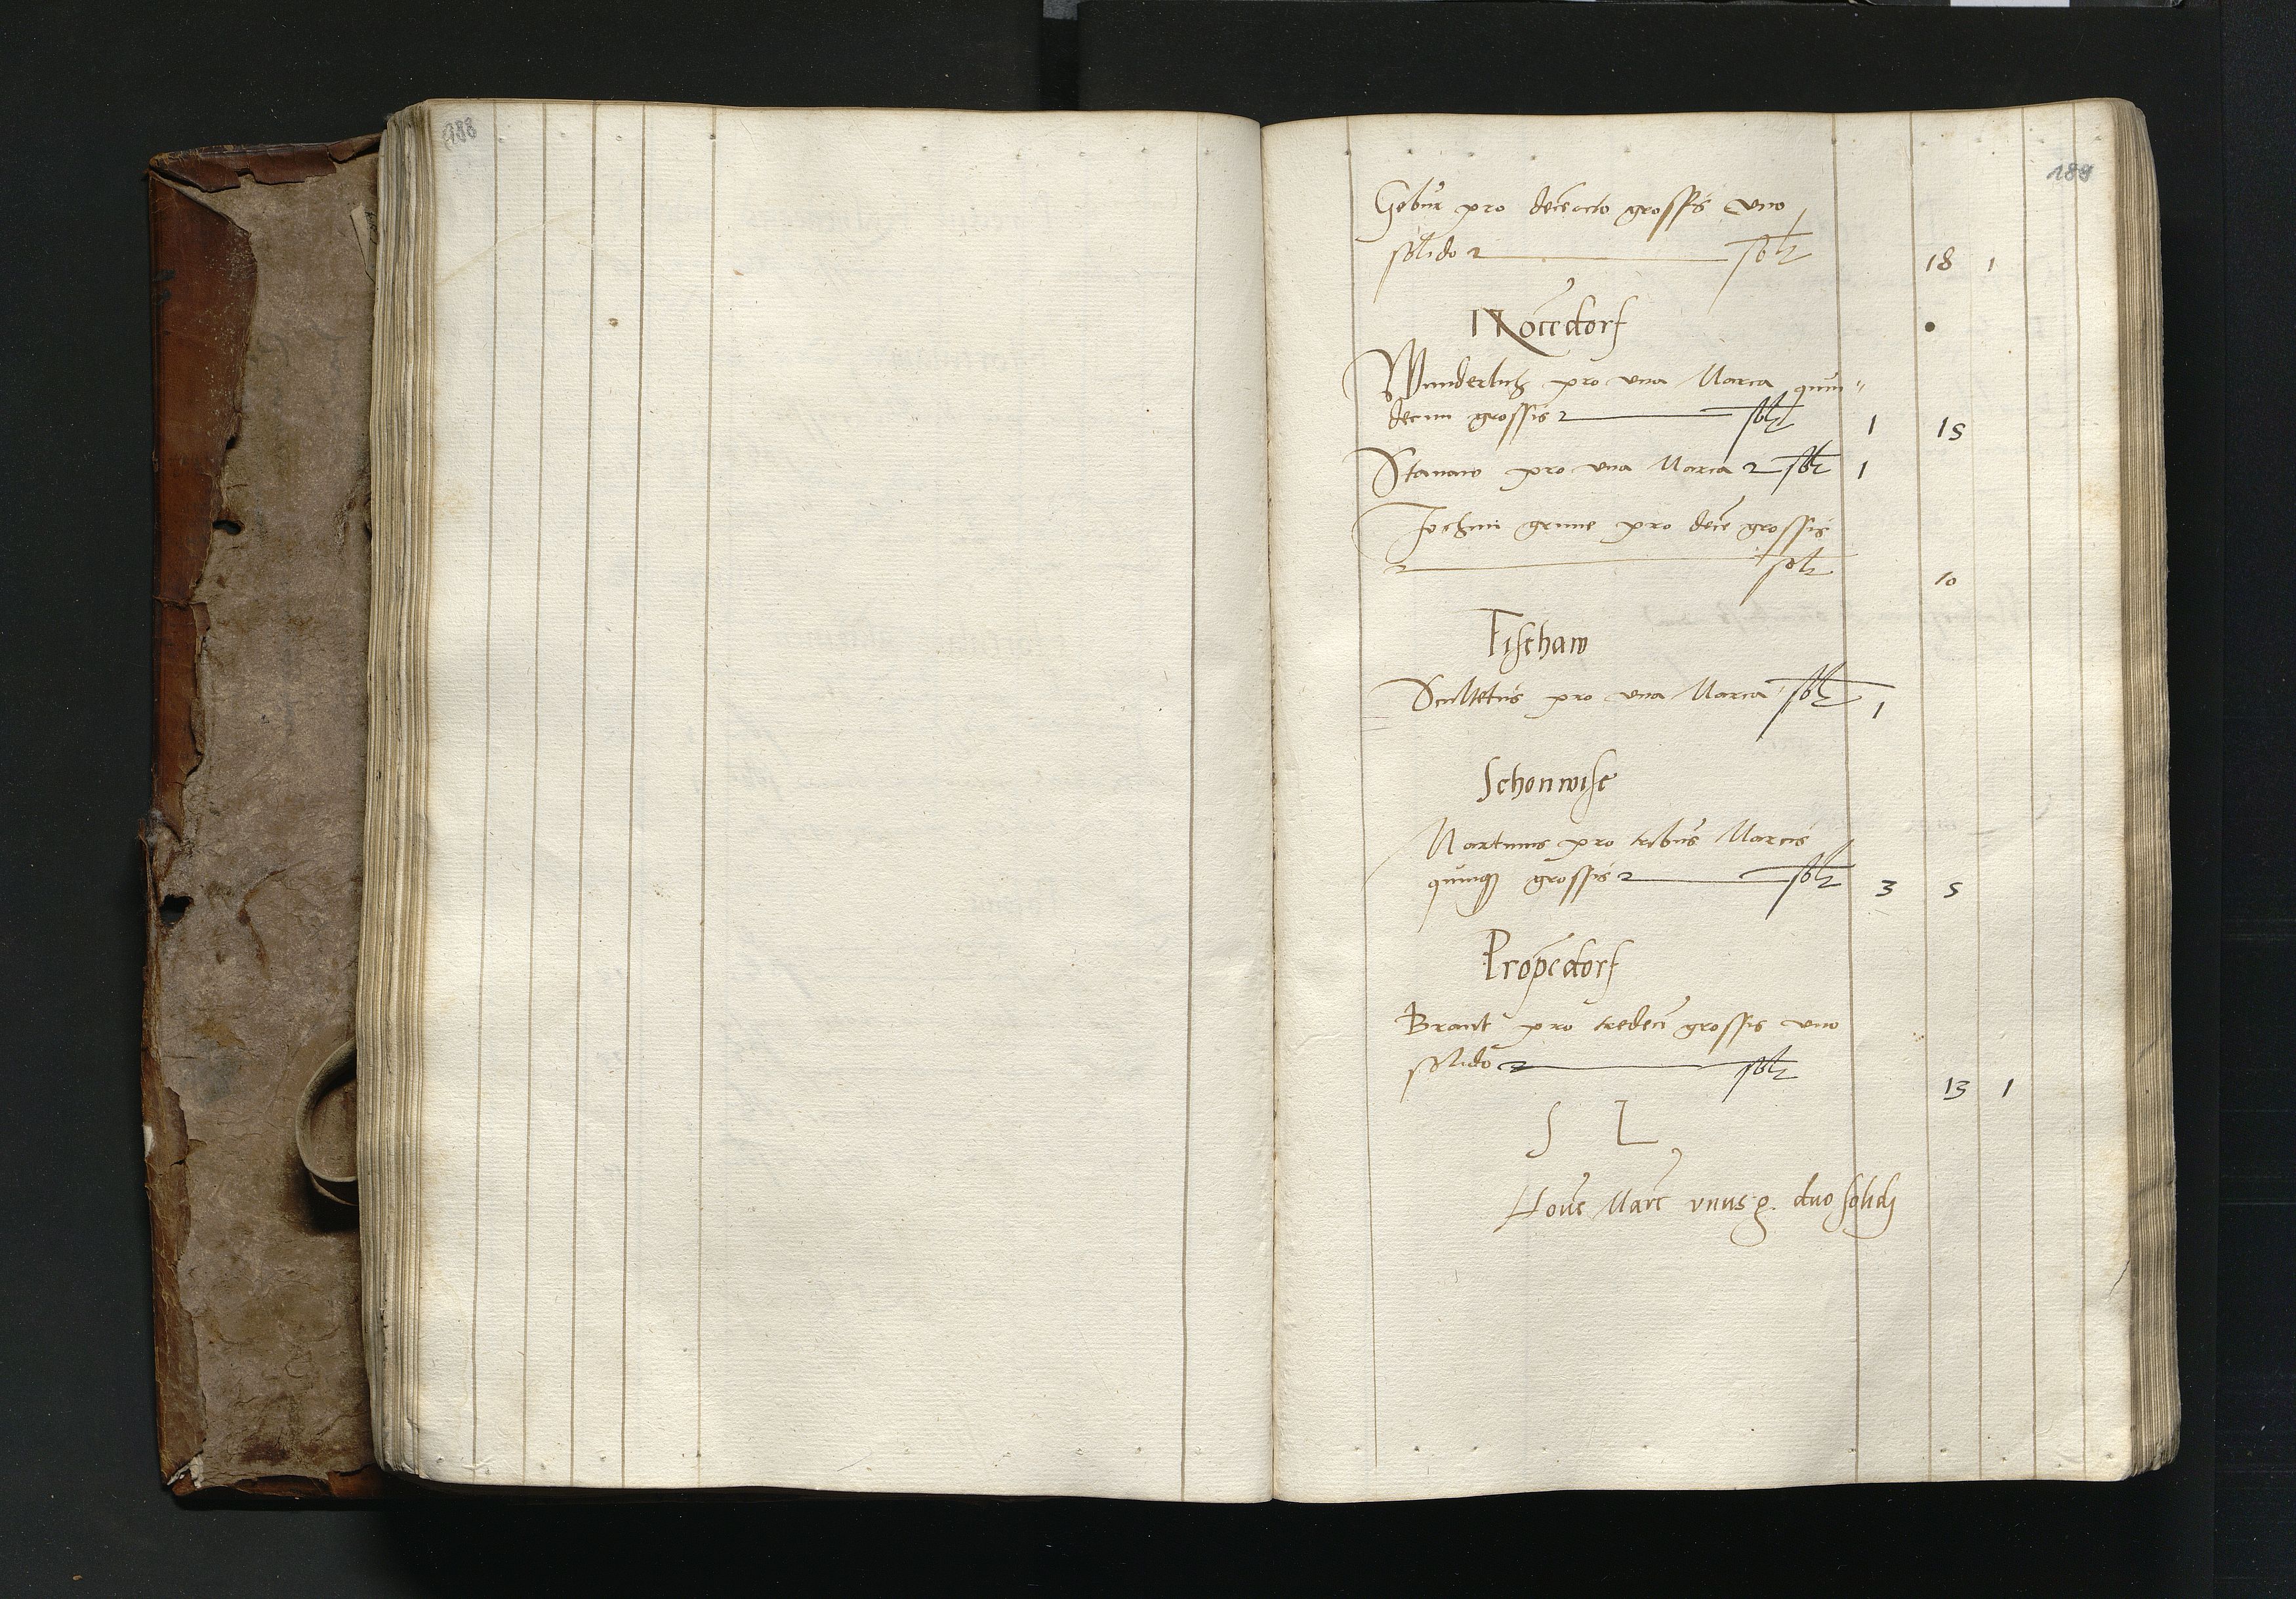 188
189
Gebur pro decēocto grossis vno
solido solt 18 1
Nocēdorf
Wunderlich pro vna Marca quin"
decim grossis solt 1 15
Stanaw pro vna Marca solt 1
Jochim grune pro decē grossis
solt 10
Fischaw
Scultetus pro vna Marca solt 1
Schonwise
Martinus pro tribus Marcis
quinq grossis solt 3 5
Propēdorf
Brant pro tredeci grossis vno
solido solt 13 1
S L
Novē Marc vnus g. duo solidj